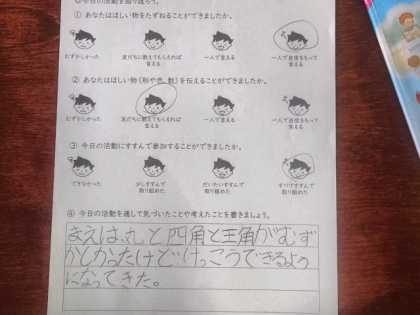 ◎今日の活動を振り返ろう。
① あなたはほしい物をたずねることができましたか。
むずかしかった
友だちに教えてもらえれば言える
一人で言える
一人で自信をもって言える
② あなたはほしい物（形や色、数）を伝えることができましたか。
むずかしかった
友だちに教えてもらえれば言える
一人で言える
一人で自信をもって言える
③ 今日の活動にすすんで参加することができましたか。
できなかった
少しすすんで取り組めた
だいたいすすんで取り組めた
すべてすすんで取り組めた
④ 今日の活動を通して気づいたことや考えたことを書きましょう。
まえは、丸と四角と三角がむず
かしかったけどけっこうできるよう
になってきた。